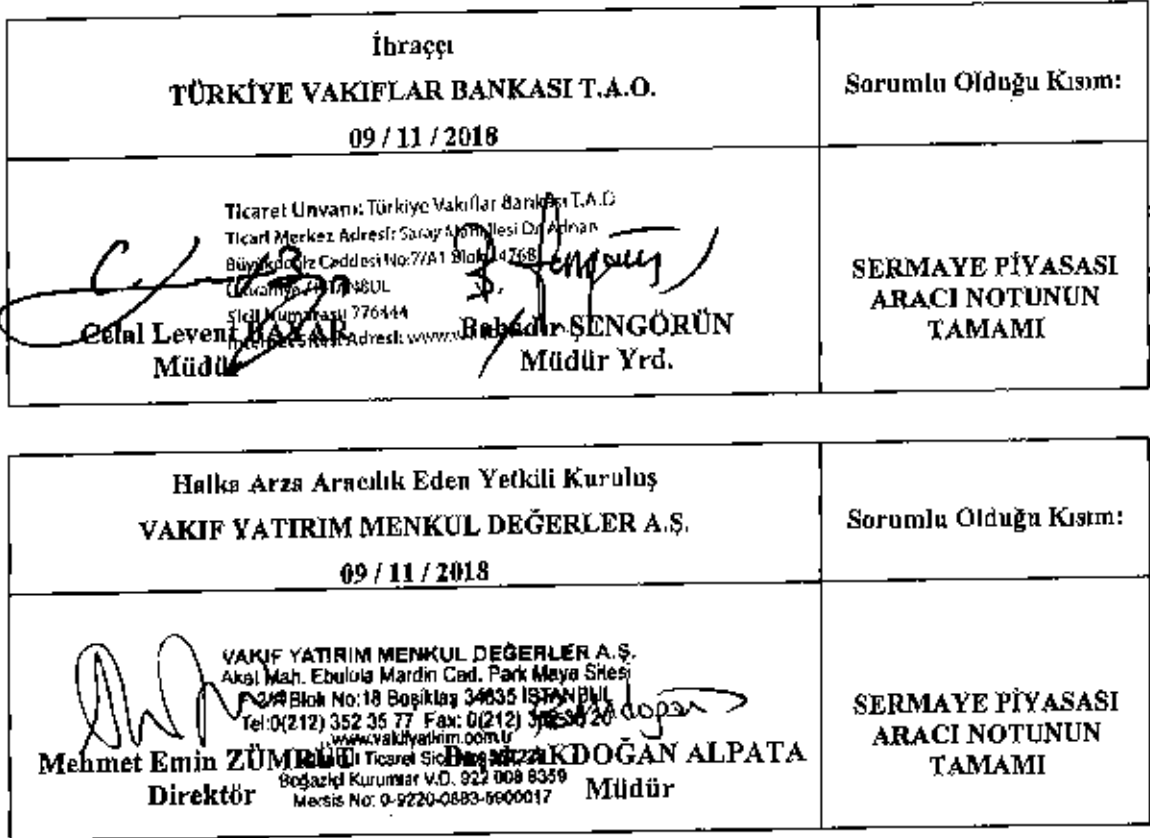 İhraççı
TÜRKİYE VAKIFLAR BANKASI T.A.O.
09 / 11 / 2018
Sorumlu Olduğu Kısım:
Ticaret Unvanı: Türkiye Vakıflar Bankası T.A.O
Ticari Merkez Adresi: Saray Mahallesi Dr. Adnan
Büyükdeniz Caddesi No:7/A1 Blok
İSTANBUL
Sicil Numarası 776444
Adresi: www.
Celal Levent
Müdür
ŞENGÖRÜN
Müdür Yrd.
SERMAYE PİYASASI
ARACI NOTUNUN
TAMAMI
Halka Arza Aracılık Eden Yetkili Kuruluş
VAKIF YATIRIM MENKUL DEĞERLER A.Ş.
09 / 11 / 2018
Sorumlu Olduğu Kısım:
VAKIF YATIRIM MENKUL DEĞERLER A.Ş.
Mah. Ebulula Mardin Cad. Park Maya Sitesi
Blok No:18 Beşiktaş 34635 İSTANBUL
Tel:0(212) 352 35 77 Fax: 0(212)
www.vakifyatirim.com.tr
Ticaret
Mehmet Emin ZÜMRÜT
AKDOĞAN ALPATA
Boğaziçi Kurumlar V.D. 922 008 8359
Direktör
Müdür
Mersis No:
SERMAYE PİYASASI
ARACI NOTUNUN
TAMAMI